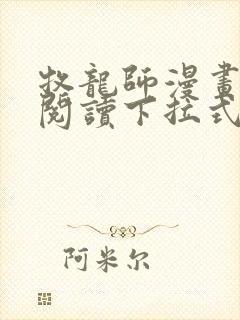 牧龍師漫畫
閱讀下拉式
阿米尔